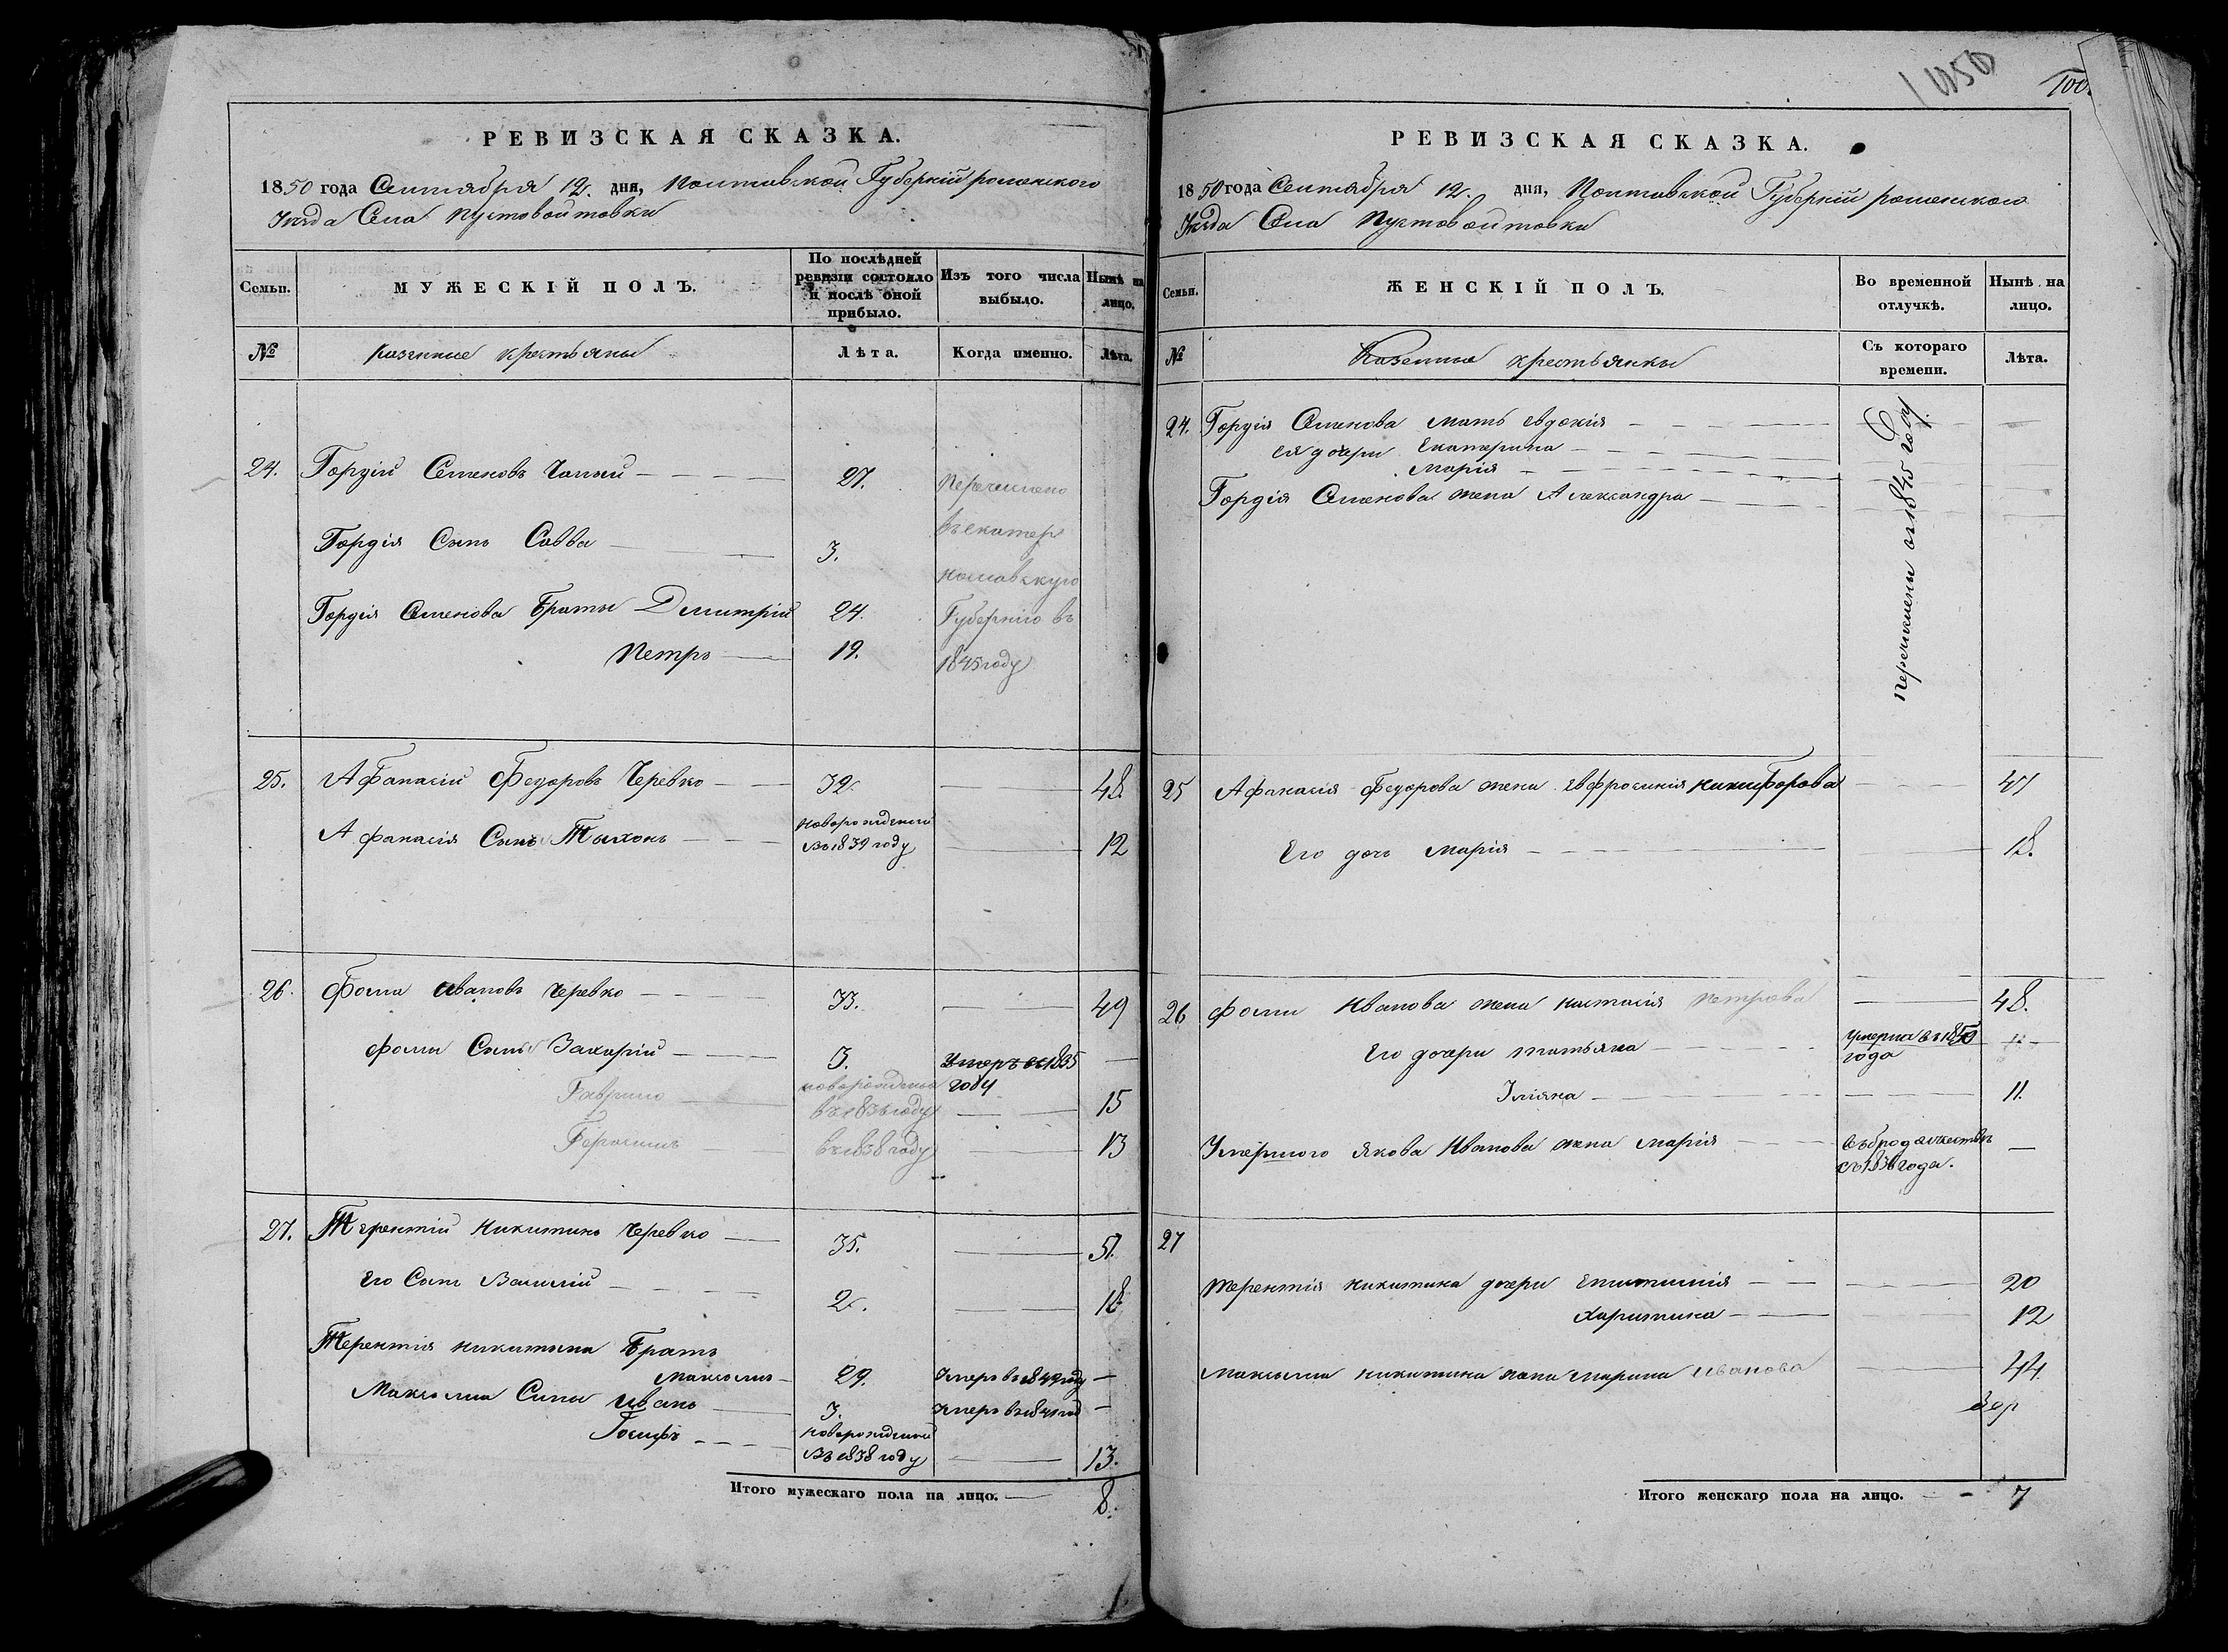 РЕВИЗСКАЯ СКАЗКА.
1850 года Сентября 12. дня, Полтавской Губерніи роменского
Уезда Села Пустовойтовки
Семьи.
МУЖЕСКІЙ ПОЛЪ.
По послѣдней ревизіи состояло и послѣ оной прибыло.
Изъ того числа выбыло.
Нынѣ на лицо.
№
казенные крестьяны
Лѣта.
Когда именно.
Лѣта.
24. Гордій Семеновъ 27. Перечислено
Гордія Сынъ Савва 3. въ екатер
нославскую
Гордія Семенова Браты Димитрій 24. Губернію въ
Петръ 19. 1845 году
25. Афанасій Федоровъ Черевко 32. 48.
Афанасія Сынъ Тыхонъ новорожденный 12
въ 1839 году
26. Фома Ивановъ Черевко 33. 49
Фомы Сыны Захарій 3. Умеръ въ 1835
Гаврило новорожденны году
15
Герасимъ въ 1838 году 13
27. Терентій Никитинъ Черевко 35. 51.
Его Сынъ Василій 2. 18
Терентія Никитина Братъ
Максимъ 29. Умеръ в 1849 году
Максима Сыны Иванъ 3. Умеръ в 1841 год
Іосифъ новорожденный
въ 1838 году 13.
Итого мужескаго пола на лицо. 8.
1050
100.
РЕВИЗСКАЯ СКАЗКА.
1850 года Сентября 12. дня, Полтавской Губерніи роменского
Уезда Села Пустовойтовки
Семьи.
ЖЕНСКІЙ ПОЛЪ.
Во временной отлучкѣ.
Нынѣ на лицо.
№
Казенные крестьянки
Съ котораго времени.
Лѣта.
24. Гордія Семенова мать евдокія
ея дочери Екатерина
Марія
Гордія Семенова жена Александра
Перечислены въ 1845 году
25 Афанасія Федорова жена Евфросинія Никифорова 47
Его дочь Марія 18.
26 Фомы Иванова жена настасія петрова 48.
Его дочери татьяна умерла въ 1850
года
Уліяна 11.
Умершого якова Иванова жена Марія въ бродяжествѣ
съ 1836 года.
27
терентія никитина дочери 20
Харитина 12
Максима никитина жена Марина Иванова 44
Итого женскаго пола на лицо. 7